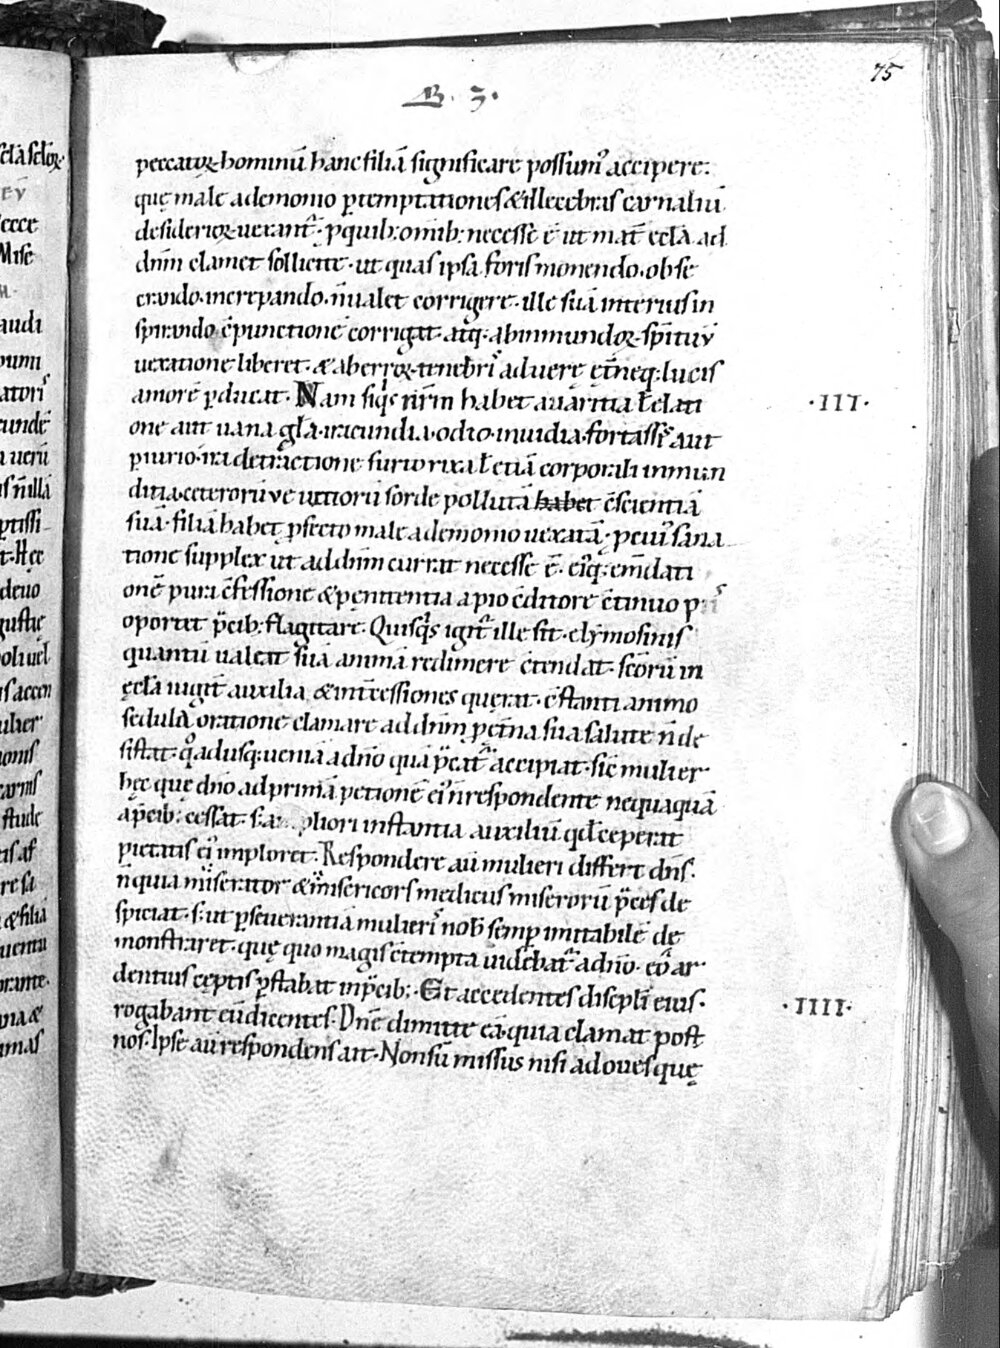 75
B. 3.
peccatoꝝ hominū hanc filiā significare possumꝰ accipere:
quę male a demonio ꝑ temptationes & illecebras carnaliū
desiderioꝝ uexant᷑. ꝓ quib; omib; necesse ē ut mat̄ ęccła ad
dn̄m clamet sollicite. ut quas ipsa foris monendo. obse
crando. increpando. n̄ ualet corrigere. ille suā interius in
spirando c̄punctione corrigat. atq; ab inmundoꝝ sp̄ituū
uexatione liberet. & ab erroꝝ tenebris ad uerę et̄neq; lucis
amorē ꝑducat. Nam siqͥs nr̄m habet auaritia ł elati
.III.
one aut uana gła. iracundia. odio. inuidia. fortassis aut
ꝑiurio. ira detractione furto rixa ł etiā corporali inmun
ditia. ceterorū ve uitiorū sorde pollutā habet c̄scientiā
suā. filiā habet ꝓfecto male a demonio uexatā. ꝓ cuiꝰ sana
tione supplex ut ad dn̄m currat necesse ē. eiꝰq; em̄dati
onē pura c̄fessione & penitentia a pio c̄ditore c̄tinuo
oportet p̄cib; flagitare. Quisqͥs igit᷑ ille sit. elymosinis
quantū ualeat suā animā redimere c̄tendat. sc̄orū in
ęccła iugit̄ auxilia & int̄cessiones querat. c̄stanti animo
sedula oratione clamare ad dn̄m ꝓ et̄na sua salute n̄ de
sistat. qͦadusq; ueniā a dn̄o quā p̄cat᷑ accipiat. sic mulier
hęc quę dn̄o ad primā petionē eiꝰ n̄ respondente nequaquā
a p̄cib; cessat. s; pliori instantia auxiliū qđ ceperat
pietatis eiꝰ imploret. Respondere aū mulieri differt dn̄s.
n̄ quia miserator & misericors medicus miserorū p̄ces de
spiciat. s; ut ꝑseuerantiā mulieris nob̄ semꝑ imitabilē de
monstraret. quę quo magis c̄tempta uidebat᷑ a dn̄o. eo ar
dentius cęptis ꝑstabat in p̄cib;. Et accedentes discipłi eius.
.IIII.
rogabant eū dicentes. Dn̄e dimitte eā. quia clamat post
nos. Ipse aū respondens ait. Non sū missus nisi ad oues quę